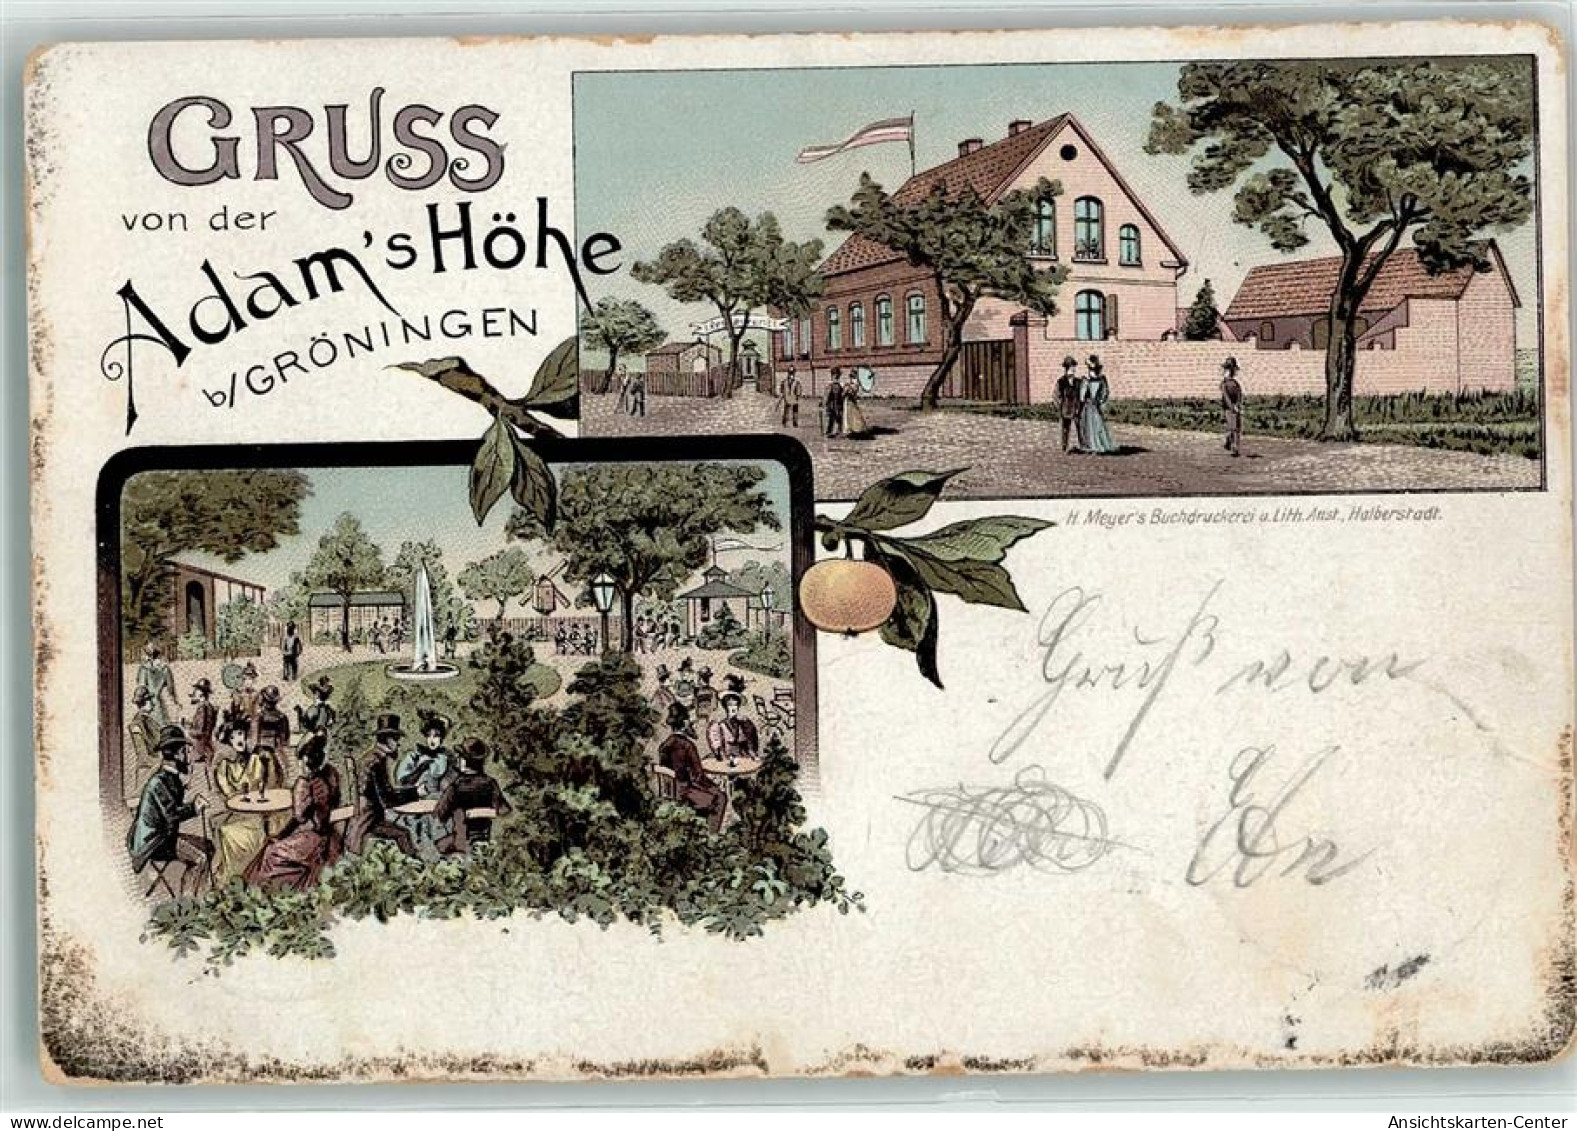 GRUSS
von der
Adam's Höhe
b/GRÖNINGEN
H. Meyer's Buchdruckerei u. Lith. Anst., Halberstadt.
Gruß von
delcampe.net
Ansichtskarten-Center